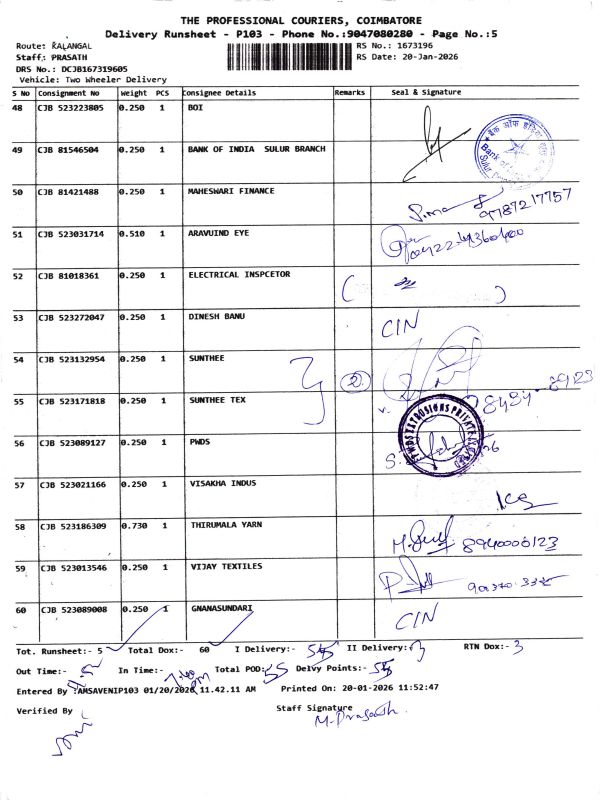 THE PROFESSIONAL COURIERS, COIMBATORE
Delivery Runsheet - P103 - Phone No.:9047080280 - Page No.:5
Route: KALANGAL
RS No.: 1673196
Staff: PRASATH
RS Date: 20-Jan-2026
DRS No.: DCJB167319605
Vehicle: Two Wheeler Delivery
S No Consignment No Weight PCS Consignee Details Remarks Seal & Signature
48 CJB 523223805 0.250 1 BOI
49 CJB 81546504 0.250 1 BANK OF INDIA SULUR BRANCH
बैंक ऑफ इंडिया
Bank of
Sulur
50 CJB 81421488 0.250 1 MAHESWARI FINANCE
9787217757
51 CJB 523031714 0.510 1 ARAVUIND EYE
52 CJB 81018361 0.250 1 ELECTRICAL INSPCETOR
( )
53 CJB 523272047 0.250 1 DINESH BANU CIN
54 CJB 523132954 0.250 1 SUNTHEE 2
55 CJB 523171818 0.250 1 SUNTHEE TEX
56 CJB 523089127 0.250 1 PWDS
57 CJB 523021166 0.250 1 VISAKHA INDUS
58 CJB 523186309 0.730 1 THIRUMALA YARN 8940006123
59 CJB 523013546 0.250 1 VIJAY TEXTILES
60 CJB 523089008 0.250 1 GNANASUNDARI CIN
Tot. Runsheet:- 5 Total Dox:- 60 I Delivery:- II Delivery:- 3 RTN Dox:- 3
Out Time:- In Time:- Total POD:- 55 Delvy Points:-
Entered By :AMSAVENIP103 01/20/2026 11.42.11 AM Printed On: 20-01-2026 11:52:47
Verified By Staff Signature
M. Prasath.